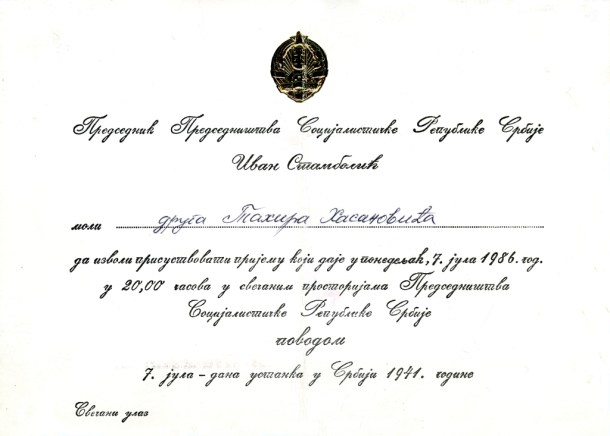 Председник Председништва Социјалистичке Републике Србије
Иван Стамболић
моли друга Тахира Хасановића
да изволи присуствовати пријему који даје у понедељак, 7. јула 1986. год.
у 20,00 часова у свечаним просторијама Председништва
Социјалистичке Републике Србије
поводом
7. јула – дана устанка у Србији 1941. године
Свечани улаз